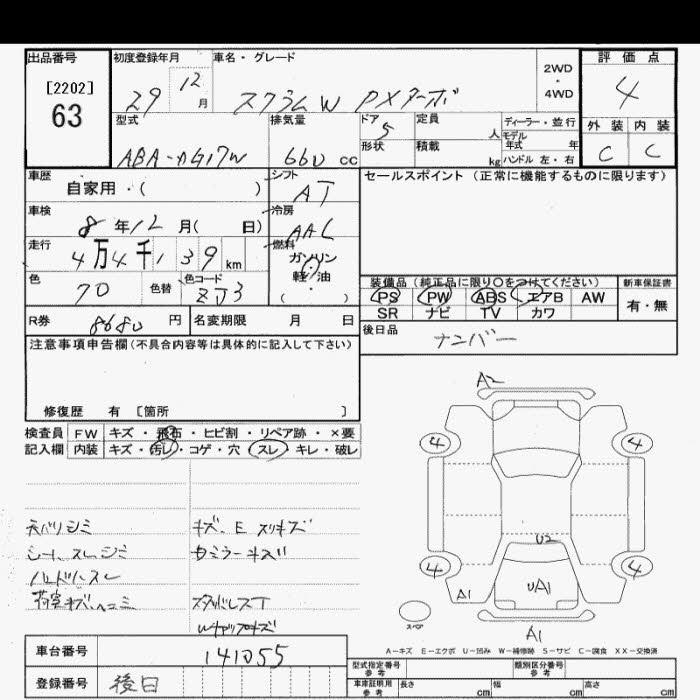 出品番号
[2202]
63
初度登録年月
29 12月
車名・グレード
スクラムW PXターボ
2WD・4WD
評価点
4
外装 内装
C C
型式
ABA-DG17W
排気量
660 cc
ドア 5
形状
定員 人
積載 kg
ディーラー・並行
モデル年式 年
ハンドル 左・右
車歴
自家用・( )
シフト
AT
車検
8年12月( 日)
冷房
AAC
走行
4万4千139 km
燃料
ガソリン
軽油
( ・ )
色
70
色替
色コード
ZJ3
セールスポイント(正常に機能するものに限ります)
装備品(純正品に限り○をつけてください)
新車保証書
PS PW ABS エアB AW
SR ナビ TV カワ
有・無
R券 8680 円
名変期限 月 日
後日品
ナンバー
注意事項申告欄(不具合内容等は具体的に記入して下さい)
修復歴 有 [箇所 ]
検査員 FW キズ・飛石・ヒビ割・リペア跡・×要
記入欄 内装 キズ・汚レ・コゲ・穴・スレ・キレ・破レ
天バリシミ
シート、スレ、シミ
ハンドルスレ
荷室キズ、ヘコミ
キズ、E スリキズ
スタッドレスT
Wキャップキズ
A2
4 4
U2
4 4
A1
UA1
A1
スペア
A-キズ E-エクボ U-凹み W-補修跡 S-サビ C-腐食 XX-交換済
車台番号
141055
登録番号
後日
型式指定番号 参考
類別区分番号 参考
車庫証明用 参考
長さ cm
幅 cm
高さ cm